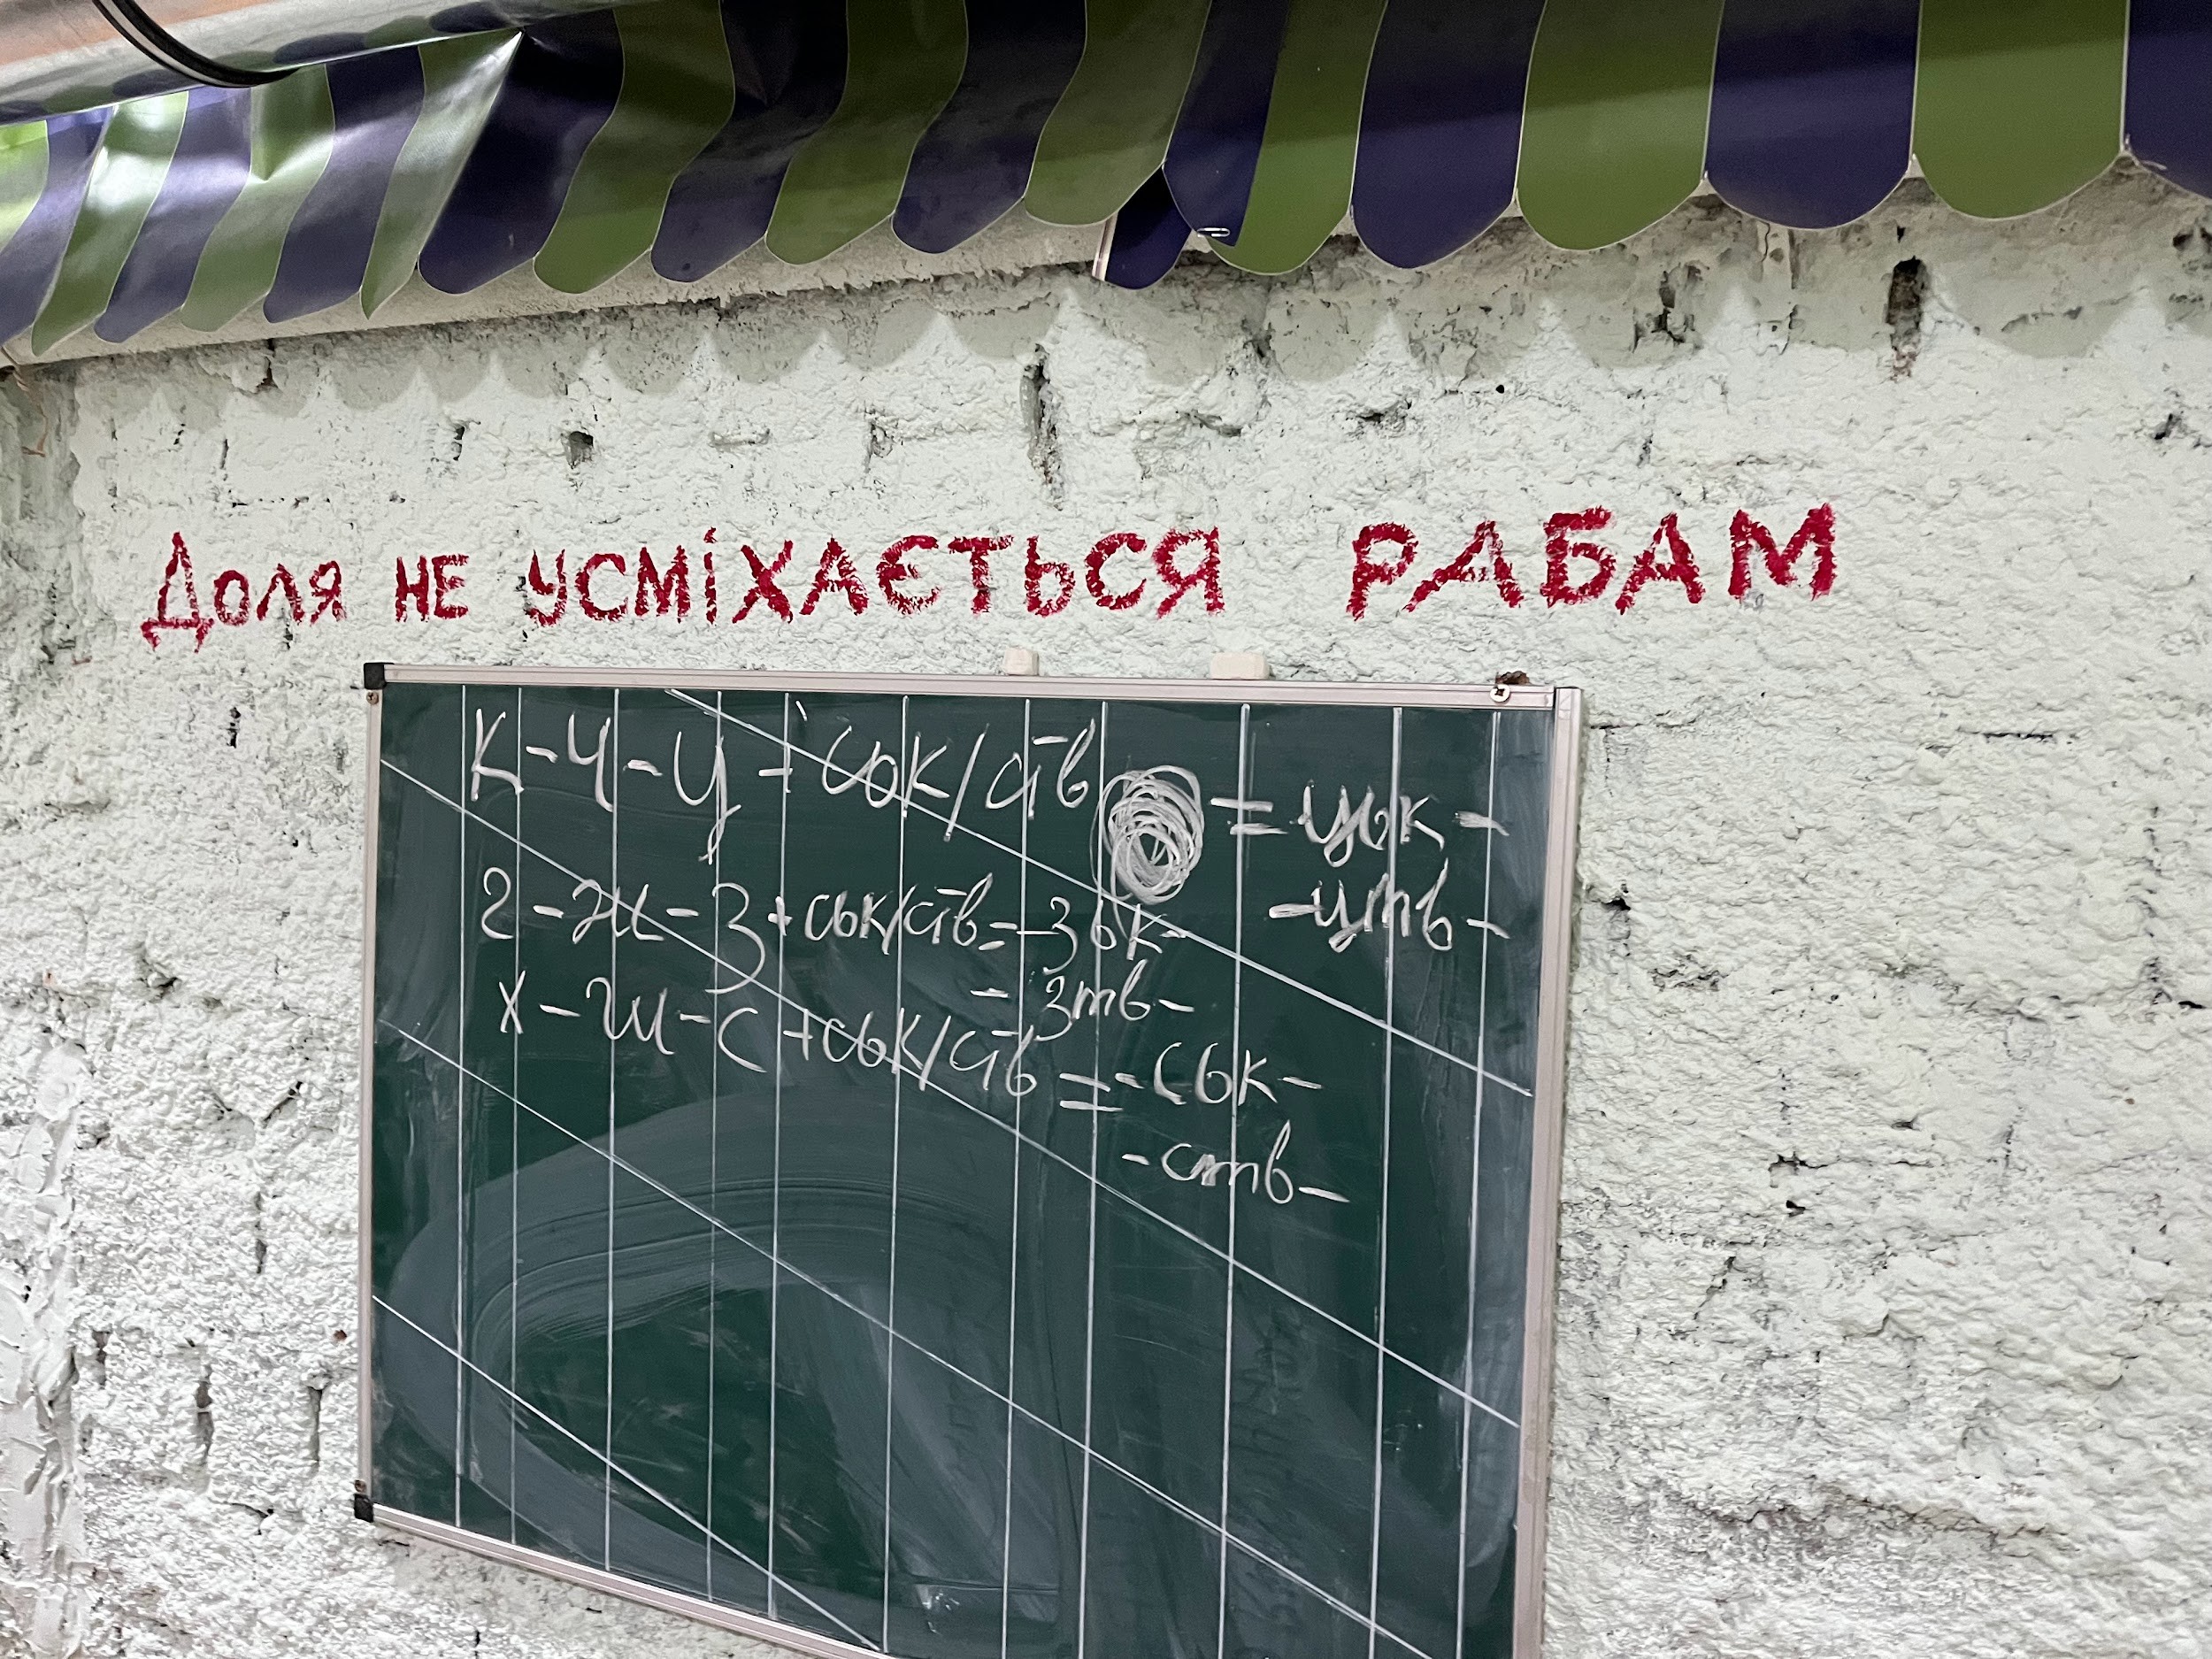 Доля не усміхається рабам
к-ч-ц + ськ/ств = -цьк-
-цтв-
г-ж-з + ськ/ств = -зьк-
-зтв-
х-ш-с + ськ/ств = -ськ-
-ств-